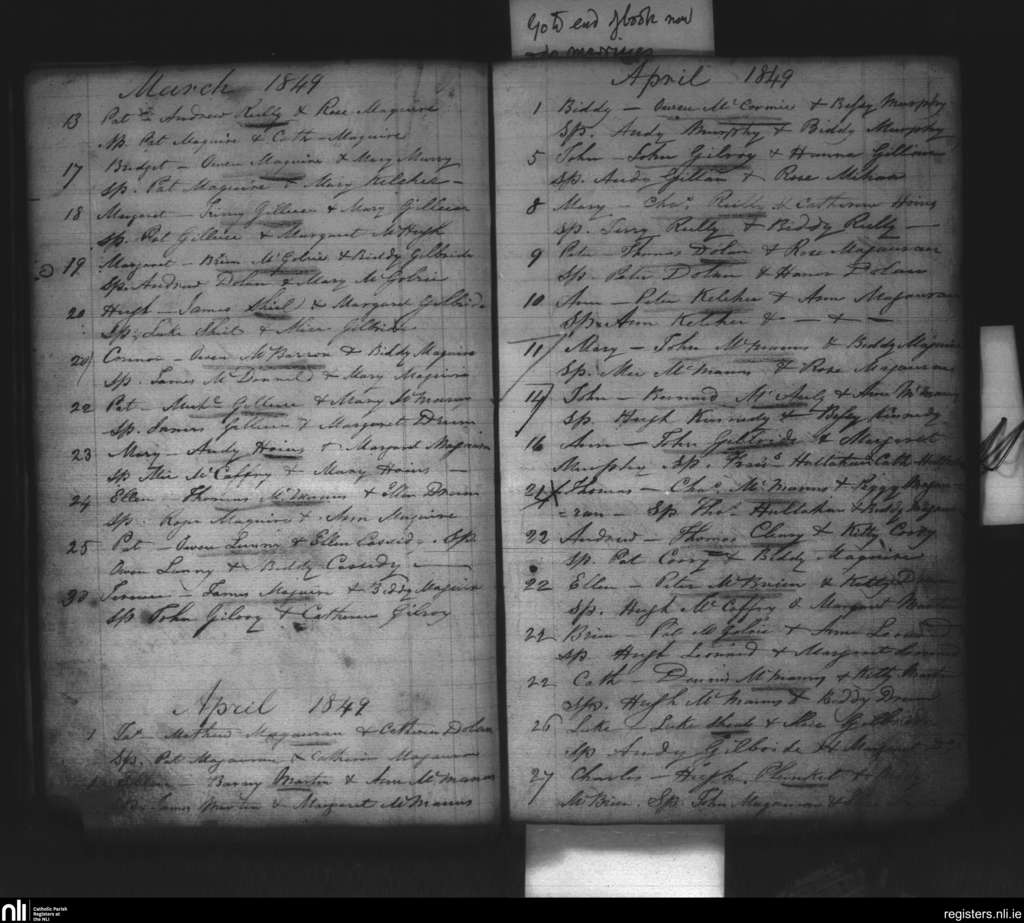 Go to end of book now
March 1849
13 Pat — Andrew Reilly & Rose Maguire
Sp. Pat Maguire & Cath Maguire
17 Bridget — Owen Maguire & Mary Murry
Sp. Pat Maguire & Mary Kelcher —
18 Margaret — Gilleece & Mary Gilleece
Sp. Pat Gilleece & Margaret McHugh
19 Margaret — Brien McGolric & Biddy Gilbride
Sp. Andrew Dolan & Mary McGolric
20 Hugh — James Shiel & Margaret Gilbride
Sp. Luke Shiel & Alice Gilbride
20 Connor — Owen McBarron & Biddy Maguire
Sp. James McDonnel & Mary Maguire
22 Pat — Gilleece & Mary McManus
Sp. James Gilleece & Margaret Drum
23 Mary — Andy Hoins & Margaret Maguire
Sp. McCaffry & Mary Hoins —
24 Ellen — Thomas McManus & Ellen Drum
Sp. Maguire & Ann Maguire
25 Pat — Owen Lunny & Ellen Cassidy. Sp
Owen Lunny & Biddy Cassidy —
30 Terence — James Maguire & Biddy Maguire
Sp John Gilroy & Catherine Gilroy
April 1849
1 Mathew Magauran & Catherine Dolan
Sp. Pat Magauran & Catherine Magauran
Barny Martin & Ann McManus
James Martin & Margaret McManus
April 1849
1 Biddy — Owen McCormic & Betsy Murphy
Sp. Andy Murphy & Biddy Murphy
5 John — John Gilroy & Hanna Gillan
Sp. Andy Gillan & Rose
8 Mary — Chas. Reilly & Catherine Hoins
Sp. Terry Reilly & Biddy Reilly —
9 Peter — Thomas Dolan & Rose Magauran
Sp. Peter Dolan & Honor Dolan
10 Ann — Peter Kelcher & Ann Magauran
Sp. Ann Kelcher & — + —
11 Mary — John McManus & Biddy Maguire
Sp. McManus & Rose Magauran
14 John — Bernard & Ann McManus
Sp. Hugh Kennedy & Betsy Kennedy
16 Ann — John Gilbride & Margaret
Murphy Sp. Frans. Hallahan Cath
21 Thomas — Chas. McManus & Peggy Magau
=ran — Sp Thos. Hallahan &
22 Andrew — Thomas Cleary & Kitty Corry
Sp. Pat Corry & Biddy Maguire
22 Ellen — Peter McBrien & Kitty Drum
Sp. Hugh McCaffry & Margaret Martin
22 Brien — Pat McGolric & Anne Leonard
Sp. Hugh Leonard & Margaret Leonard
22 Cath — Dennis McManus & Kitty Martin
Sp. Hugh McManus & Biddy Drum
26 Luke — Luke Sheils & Alice Gilbride
Sp Andy Gilbride & Margaret Do.
27 Charles — Hugh Plunket &
McBrien. Sp. John Magauran &
nli Catholic Parish
Registers at
the NLI
registers.nli.ie